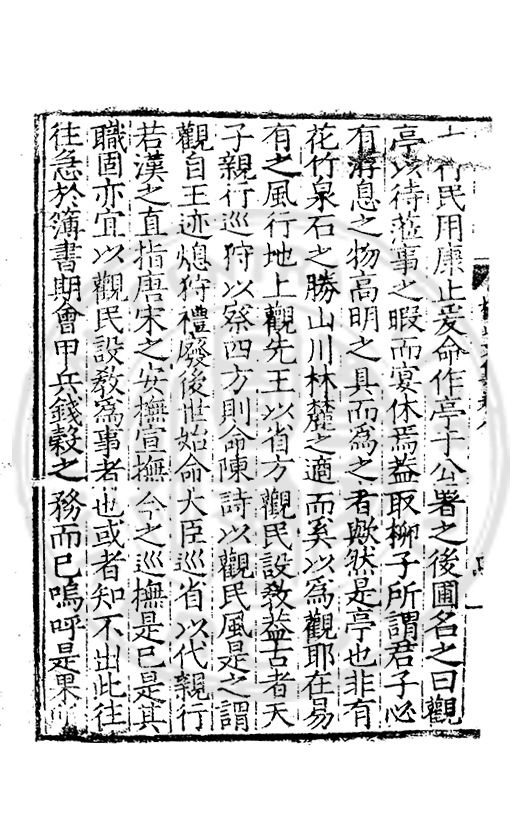 行民用康止爰命作亭于公署之後圃名之曰觀
亭以待蒞事之暇而宴休焉葢取柳子所謂君子必
有游息之物高明之具而爲之者歟然是亭也非有
花竹泉石之勝山川林麓之適而奚以爲觀耶在易
有之風行地上觀先王以省方觀民設教葢古者天
子親行巡狩以察四方則命陳詩以觀民風是之謂
觀自王迹熄狩禮廢後世始命大臣巡省以代親行
若漢之直指唐宋之安撫宣撫今之巡撫是已是其
職固亦宜以觀民設教爲事者也或者知不出此往
往急於簿書期會甲兵錢穀之務而已嗚呼是果